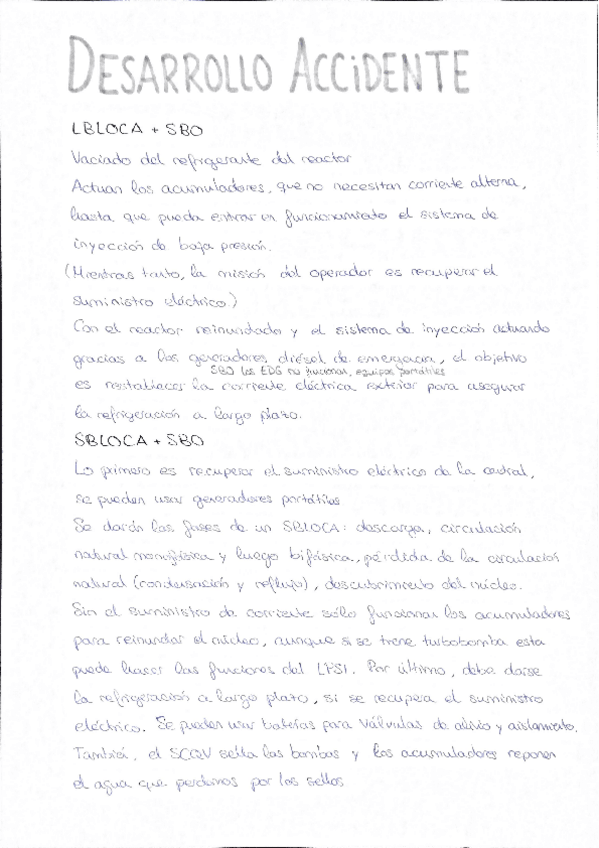 DESARROLLO ACCIDENTE
LBLOCA + SBO
Vaciado del refrigerante del reactor
Actuan los acumuladores, que no necesitan corriente alterna,
hasta que pueda entrar en funcionamiento el sistema de
inyección de baja presión.
(Mientras tanto, la misión del operador es recuperar el
suministro eléctrico)
Con el reactor reinundado y el sistema de inyección actuando
gracias a los generadores diésel de emergencia, el objetivo
SBO los EDG no funcionan, equipos portátiles
es restablecer la corriente eléctrica exterior para asegurar
la refrigeración a largo plazo.
SBLOCA + SBO
Lo primero es recuperar el suministro eléctrico de la central,
se pueden usar generadores portátiles
Se darán las fases de un SBLOCA: descarga, circulación
natural monofásica y luego bifásica, pérdida de la circulación
natural (condensación y reflujo), descubrimiento del núcleo.
Sin el suministro de corriente sólo funcionan los acumuladores
para reinundar el núcleo, aunque si se tiene turbobomba esta
puede hacer las funciones del LPSI. Por último, debe darse
la refrigeración a largo plazo, si se recupera el suministro
eléctrico. Se pueden usar baterías para válvulas de alivio y aislamiento.
También, el SCQV sella las bombas y los acumuladores reponen
el agua que perdemos por los sellos